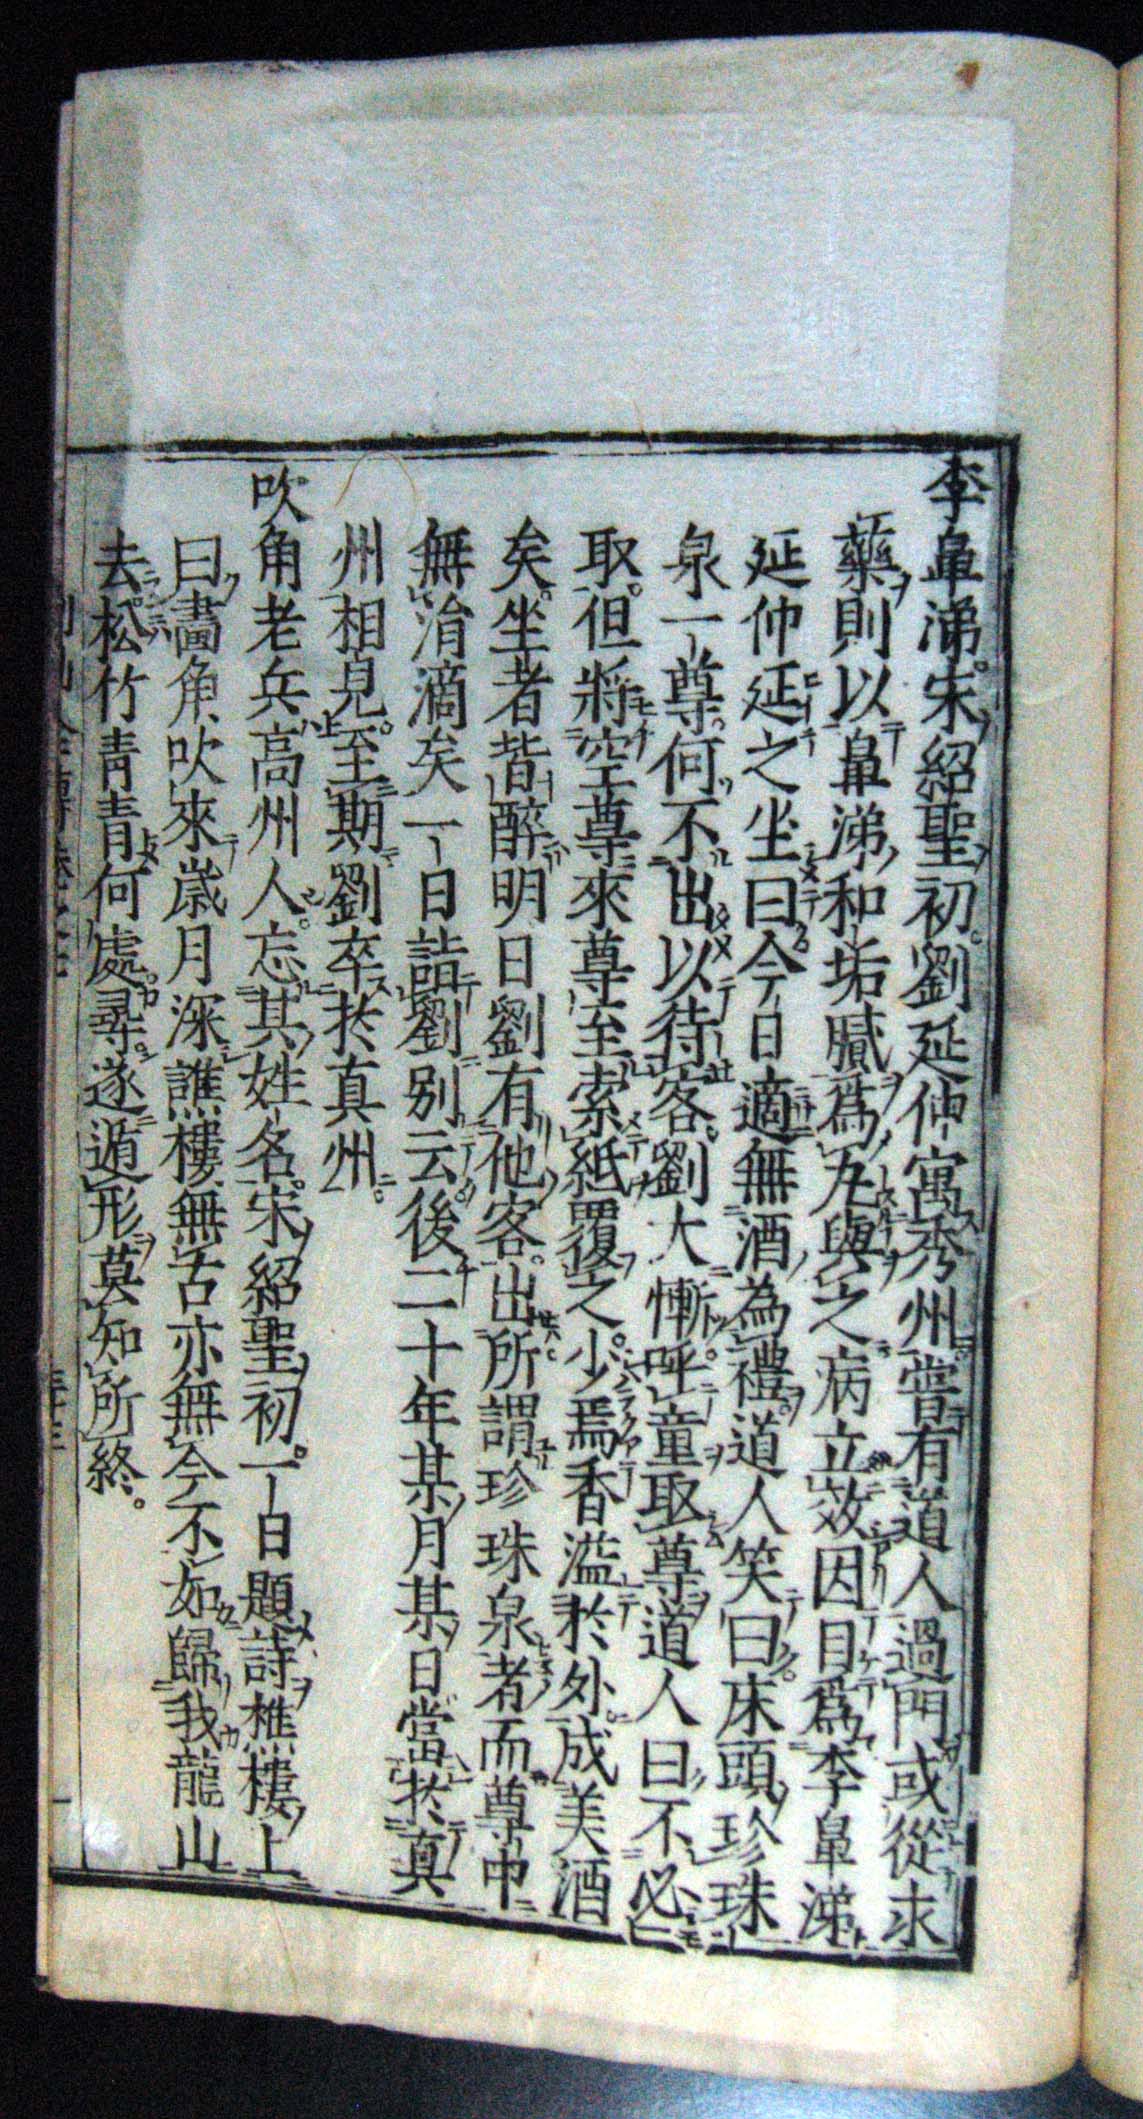 李鼻涕宋紹聖初劉延仲寓秀州嘗有道人過門或從求
藥則以鼻涕和垢膩爲丸與之病立效因目爲李鼻涕
延仲延之坐曰今日適無酒為禮道人笑曰床頭珍珠
泉一尊何不出以待客劉大慚呼童取尊道人曰不必
取但將空尊來尊至索紙覆之少焉香溢於外成美酒
矣坐者皆醉明日劉有他客出所謂珍珠泉者而尊中
無涓滴矣一日詣劉別云後二十年某月某日當於真
州相見至期劉卒於真州
吹角老兵高州人忘其姓名宋紹聖初一日題詩樵樓上
曰畫角吹來歲月深譙樓無古亦無今不如歸我龍山
去松竹青青何處尋遂遁形莫知所終